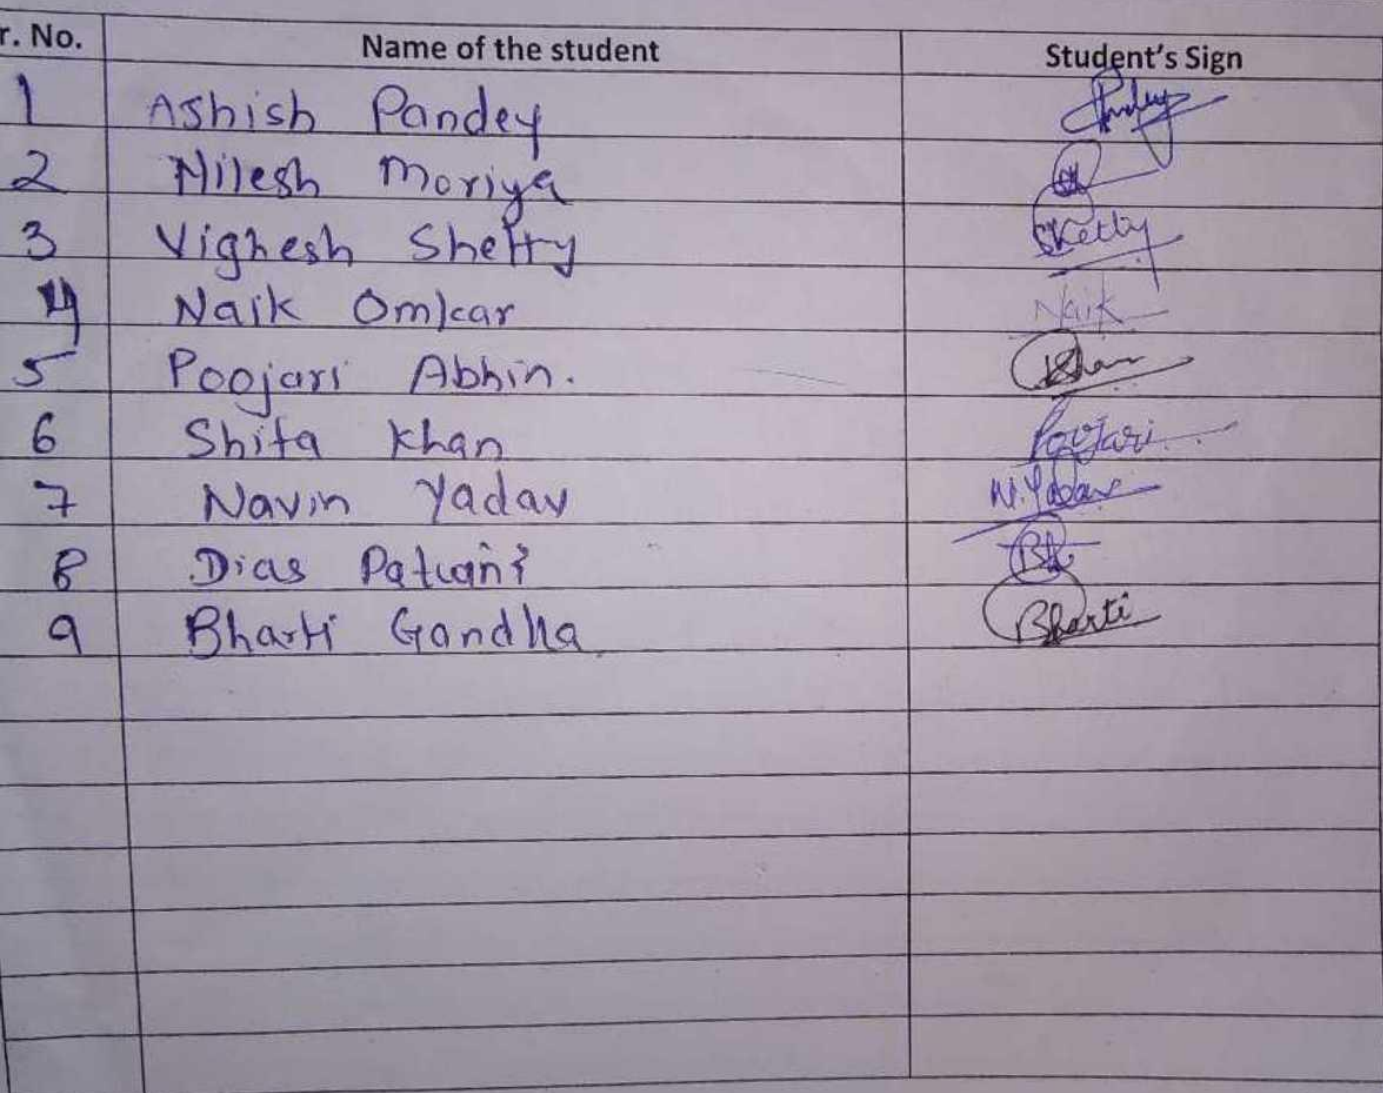 r. No. Name of the student Student's Sign
1 Ashish Pandey Pandey
2 Nilesh Moriya
3 Vighesh Shetty Shetty
4 Naik Omkar Naik
5 Poojari Abhin. Khan
6 Shifa Khan Poojari
7 Navin Yadav N.Yadav
8 Dias
9 Bharti Gandha Bharti